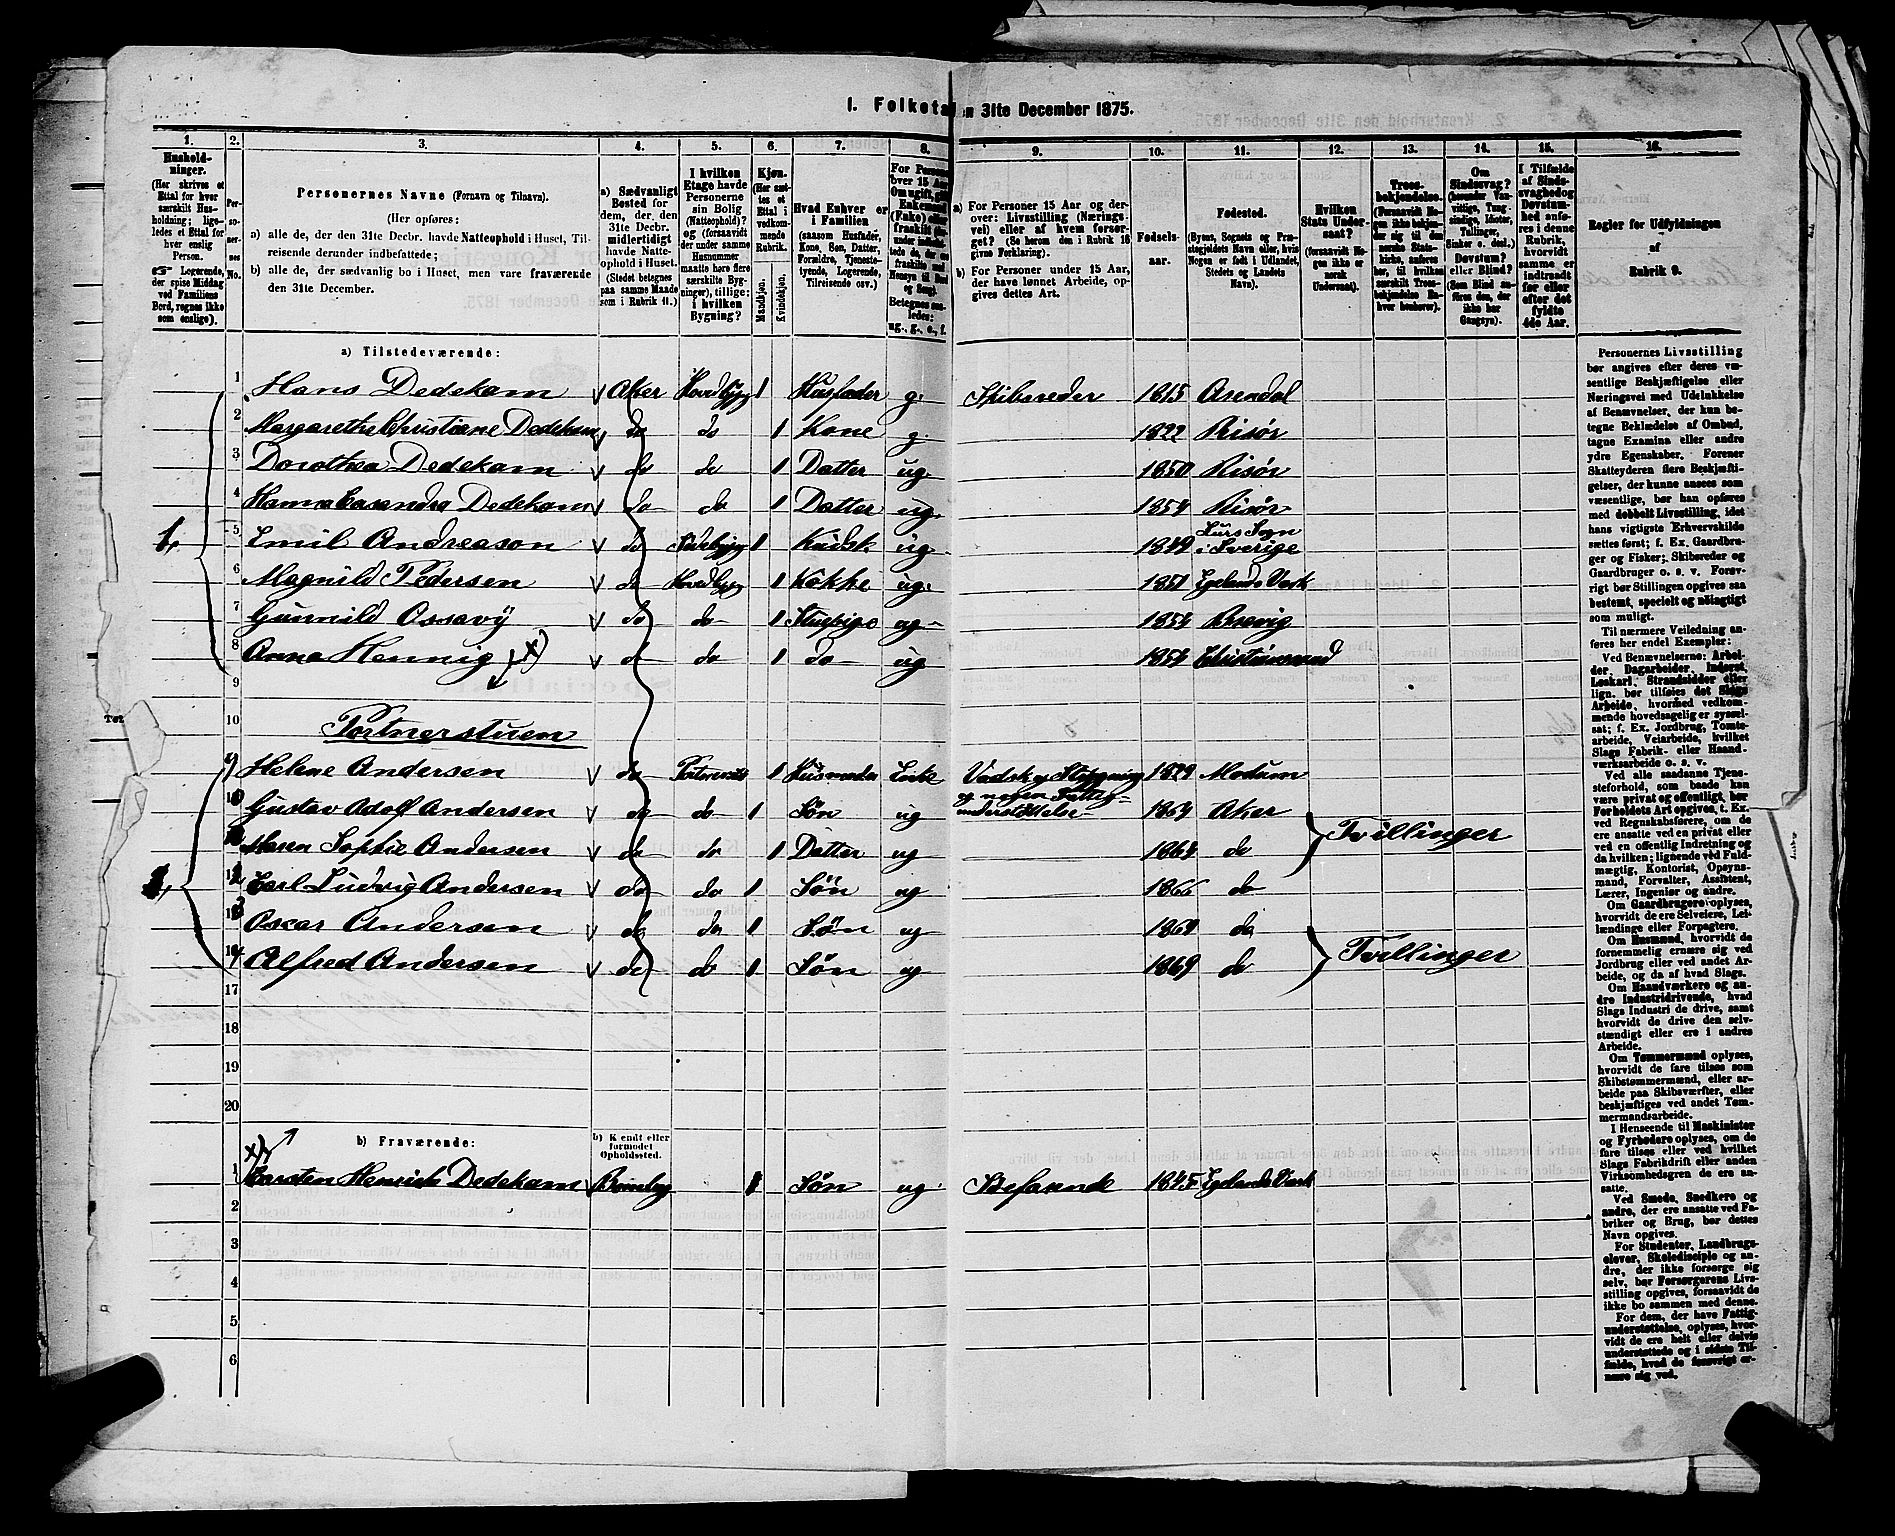 1. Folketal den 31te December 1875.
1. 2. 3. 4. 5. 6. 7. 8. 9. 10. 11. 12. 13. 14. 15. 16.
Hushold-
ninger.
(Her skrives et
Ettal for hver
særskilt Hus-
holdning; lige-
ledes et Ettal for
hver enslig
Person.
Logerende,
der spise Middag
ved Familiens
Bord, regnes ikke
som enslige).
Per-
so-
ner-
nes
No.
Personernes Navne (Fornavn og Tilnavn).
(Her opføres:
a) alle de, der den 31te Decbr. havde Natteophold i Huset, Til-
reisende derunder indbefattede;
b) alle de, der sædvanlig bo i Huset, men vare fraværende
den 31te December.
a) Sædvanligt
Bosted for
dem, der den
31te Decbr.
midlertidigt
havde Natte-
ophold i Huset.
(Stedet betegnes
paa samme Maade
som i Rubrik 11.)
I hvilken
Etage havde
Personerne
sin Bolig
(Natteophold)?
og (forsaavidt
der under samme
Husnummer
maatte høre flere
særskilte Byg-
ninger), tillige:
i hvilken
Bygning?
Kjøn.
(Her sæt-
tes et
Ettal i
vedkom-
mende
Rubrik.
Mandkjøn.
Kvindekjøn.
Hvad Enhver er
i Familien
(saasom Husfader,
Kone, Søn, Datter,
Forældre, Tjeneste-
tyende, Logerende,
Tilreisende osv.)
a) For Personer 15 Aar og der-
over: Livsstilling (Nærings-
vei) eller af hvem forsør-
get? (Se herom den i Rubrik 16
givne Forklaring).
b) For Personer under 15 Aar,
der have lønnet Arbeide, op-
gives dettes Art.
Fødsels-
aar.
Fødested.
(Byens, Sognets og Præ-
stegjeldets Navn eller, hvis
Nogen er født i Udlandet,
Stedets og Landets
Navn).
Hvilken
Stats Under-
saat?
(forsaavidt No-
gen ikke er
norsk
Undersaat).
Troes-
bekjendelse.
Om
Sindssvag?
Døvstum?
eller Blind?
I Tilfælde
af Sinds-
svaghed og
Døvstum-
hed anfø-
res i denne
Rubrik,
hvorvidt
samme er
indtraadt
før eller
efter det
fyldte
4de Aar.
Regler for Udfyldningen
af
Rubrik 9.
a) Tilstedeværende:
1 Hans Dedekam Aker Hovedbygg 1 Husfader g. Skibsreder 1815 Arendal
2 Margarethe Christiane Dedekam do do 1 Kone g. 1822 Risør
3 Dorothea Dedekam do do 1 Datter ug 1850 Risør
4 Hanna Casandra Dedekam do do 1 Datter ug. 1854 Risør
1, 5 Emil Andreason do Sidebygg 1 Kudsk ug 1849 Lurs Sogn i Sverige
6 Magnild Pedersen do Hovedbygg 1 Kokke ug. 1851 Egelands Værk
7 Gunnild Ossavy do do 1 Stuepige ug 1854 Brevig
8 Anna Hennig x) do do 1 do ug 1854 Christianssand
9
10 Portnerstuen
9 Helene Andersen do Portnerst 1 Husmoder Enke Vadsk og Strygning 1829 Modum
og nogen Fattig-
understøttelse
10 Gustav Adolf Andersen do do 1 Søn ug 1864 Aker
Tvillinger
11 Maren Sophie Andersen do do 1 Datter ug 1864 do
2, 12 Carl Ludvig Andersen do do 1 Søn ug 1866 do
13 Oscar Andersen do do 1 Søn ug 1869 do
Tvillinger
14 Alfred Andersen do do 1 Søn ug 1869 do
17
18
19
20
b) Fraværende:
b) Kjendt eller
formodet
Opholdssted.
x)
1 Karsten Henrich Dedekam 1 Søn ug. 1845 Egelands Værk
2
3
4
5
6
Personernes Livsstilling
bør angives efter deres væ-
sentlige Beskjæftigelse eller
Næringsvei med Udelukkelse
af Benævnelser, der kun be-
tegne Beklædelse af Ombud,
tagne Examina eller andre
ydre Egenskaber. Forener
Skatteyderen flere Beskjæfti-
gelser, der kunne ansees som
væsentlige, bør han opføres
med dobbelt Livsstilling, idet
hans vigtigste Erhvervskilde
sættes først; f. Ex. Gaardbru-
ger og Fisker; Skibsreder og
Gaardbruger o. s. v. Forøv-
rigt bør Stillingen opgives saa
bestemt, specielt og nøiagtigt
som muligt.
Til nærmere Veiledning an-
føres her endel Exempler:
Ved Benævnelserne: Arbei-
der, Dagarbeider, Inderst,
Løskarl, Strandsidder eller
lign. bør tilføies det Slags
Arbeide, hvormed vedkom-
mende hovedsagelig er syssel-
sat; f. Ex. Jordbrug, Tomte-
arbeide, Veiarbeide, hvilket
Slags Fabrik- eller Haand-
værksarbeide o. s. v.
Ved alle saadanne Tjene-
steforhold, som baade kan
være privat og offentligt, bør
Forholdets Art opgives, t. Ex.
ved Regnskabsførere, om de
ere ansatte ved en privat eller
ved en offentlig Indretning og
da hvilken; lignende ved Fuld-
mægtig, Kontorist, Opsyns-
mand, Forvalter, Assistent,
Lærer, Ingeniør og andre.
Om Gaardbrugere oplyses,
hvorvidt de ere Selveiere, Lei-
lændinge eller Forpagtere.
Om Husmænd, hvorvidt de
fornemmelig ernære sig ved
Jordbrug eller ved andet Ar-
beide, og da af hvad Slags.
Om Haandværkere og an-
dre Industridrivende, hvad
Slags Industri de drive, samt
hvorvidt de drive den selv-
stændigt eller ere i andres
Arbeide.
Om Tømmermænd oplyses,
hvorvidt de fare tilsøs som
Skibstømmermænd, eller ar-
beide paa Skibsværfter, eller
beskjæftiges ved andet Tøm-
mermandsarbeide.
I Henseende til Maskinister
og Fyrbødere oplyses, om de
fare tilsøs eller ved hvilket
Slags Fabrikdrift eller anden
Virksomhedsgren de ere an-
satte.
Ved Smede, Snedkere og
andre, der ere ansatte ved Fa-
briker og Brug, bør dettes
Navn opgives.
For Studenter, Landbrugs-
elever, Skoledisciple og an-
dre, der ikke forsørge sig
selv, bør Forsørgerens Livs-
stilling opgives, forsaavidt de
ikke bo sammen med denne.
For dem, der have Fattig-
understøttelse, oplyses, hvor-
vidt de ere helt eller delvis
understøttede og i sidste Til-
fælde, hvad de forøvrigt er-
nære sig ved.